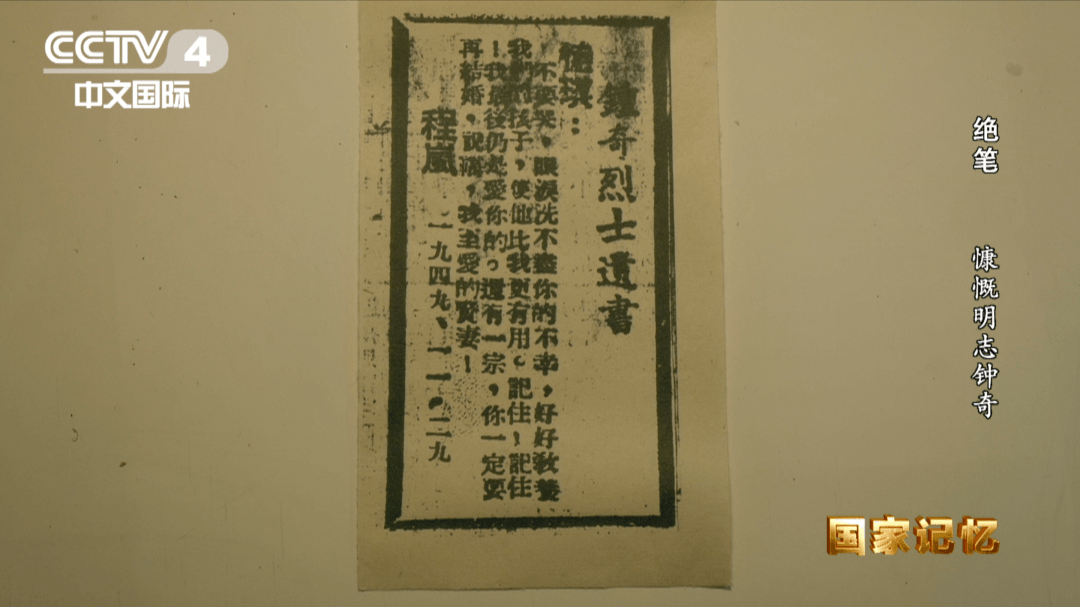 CCTV 4
中文国际
鍾奇烈士遺書
德琪：
不要哭，眼淚洗不盡你的不幸，好好教養
我們的孩子，使他比我更有用。記住！記住
！我最後仍是愛你的。還有一宗，你一定要
再結婚，祝福，我至愛的賢妻！
程嵐
一九四九、一一、二九
绝笔
慷慨明志钟奇
国家记忆